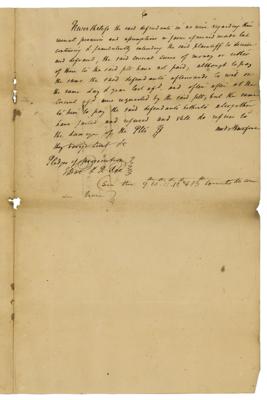 Nevertheless the said defendants in no wise regarding their
several promises and assumptions in form aforesaid made but
contriving & fraudulently intending the said plaintiff to deceive
and defraud, the said several sums of money or either
of them to the said plt have not paid, although to pay
the same the said defendants afterwards to wit on
the same day & year last afsd. and often after at the
Circuit afsd. were requested by the said plt, but the same
to him to pay the said defendants hitherto altogether
have failed and refused and still do refuse to
the damage of the Plt $ and therefore
they bring suit &c
Pledges of prosecution
John Doe & R. Roe